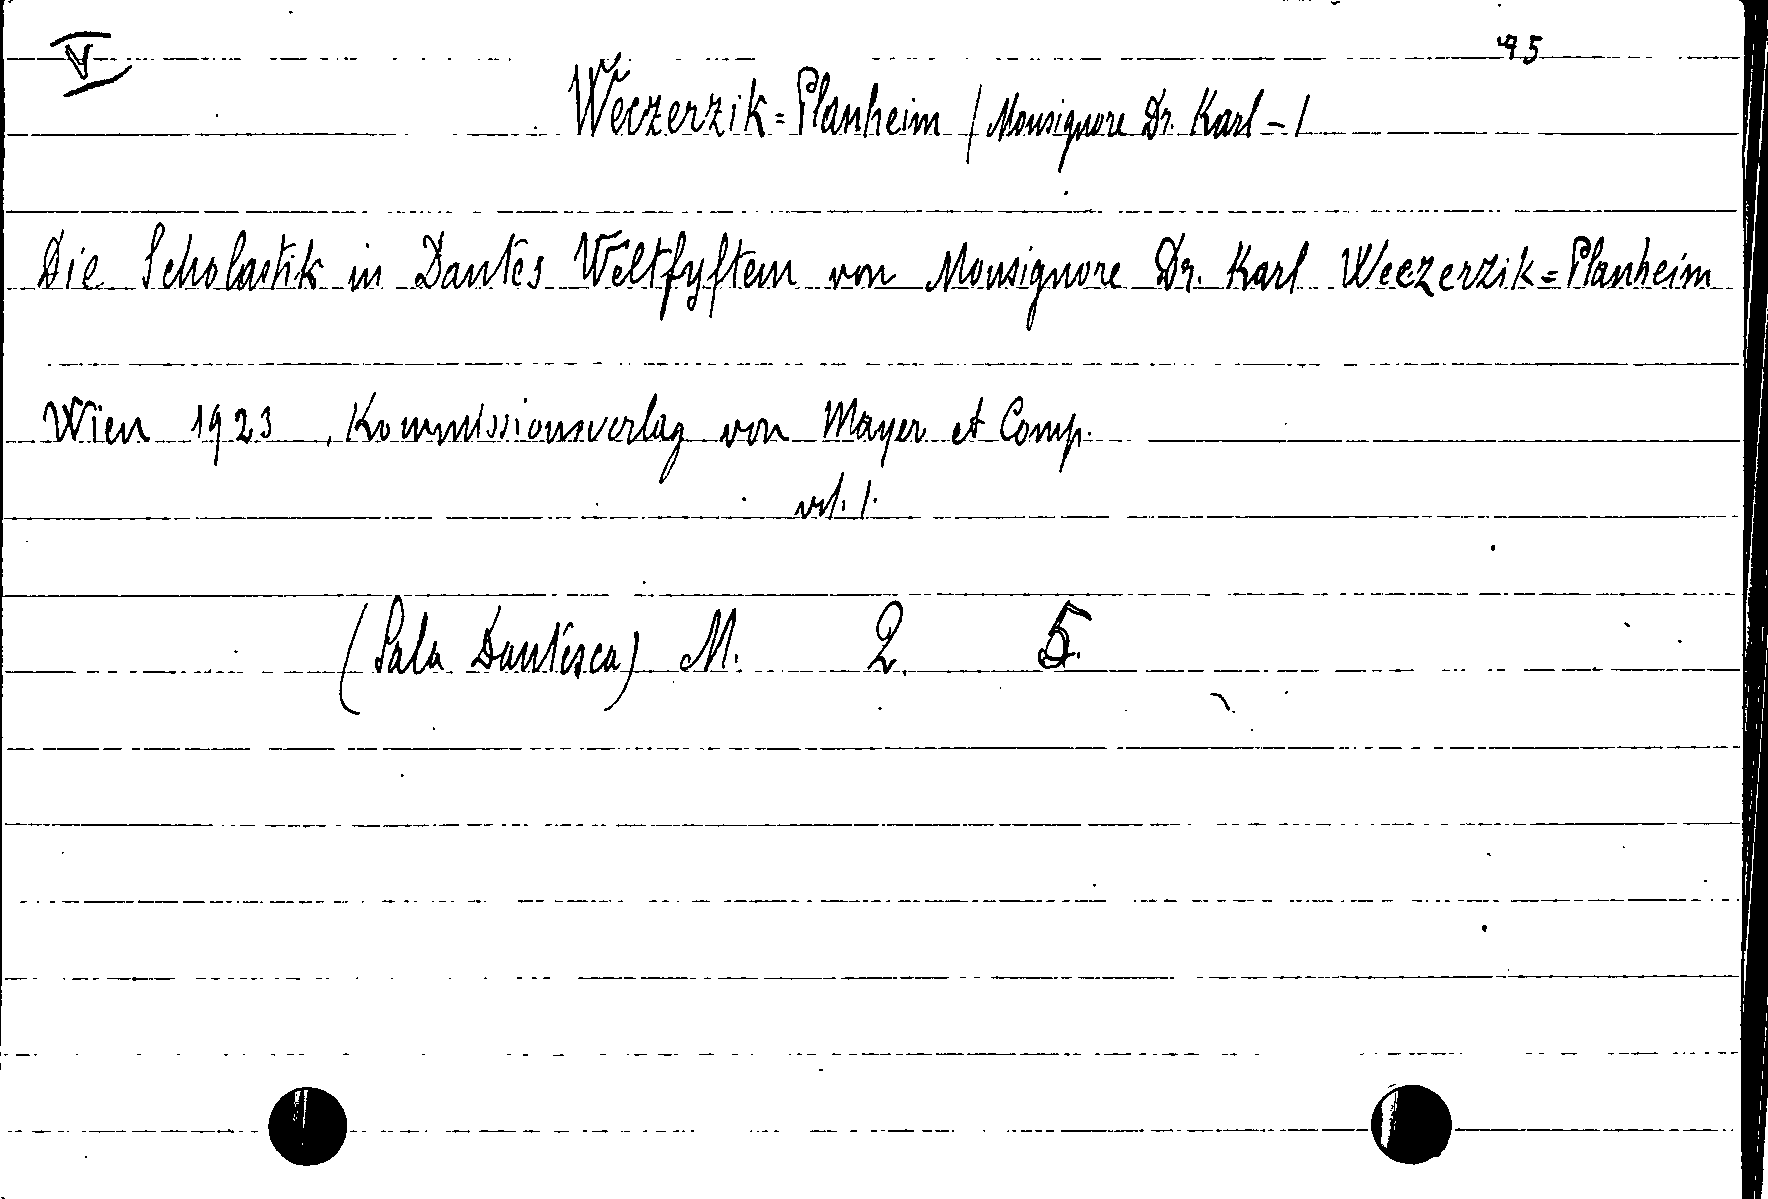 V 95
Weczerzik=Planheim / Monsignore Dr. Karl - /
Die Scholastik in Dantes Weltſyſtem von Monsignore Dr. Karl Weczerzik=Planheim
Wien 1923, Kommissionsverlag von Mayer et Comp.
vol. 1.
(Sala Dantesca) M. 2. 5.